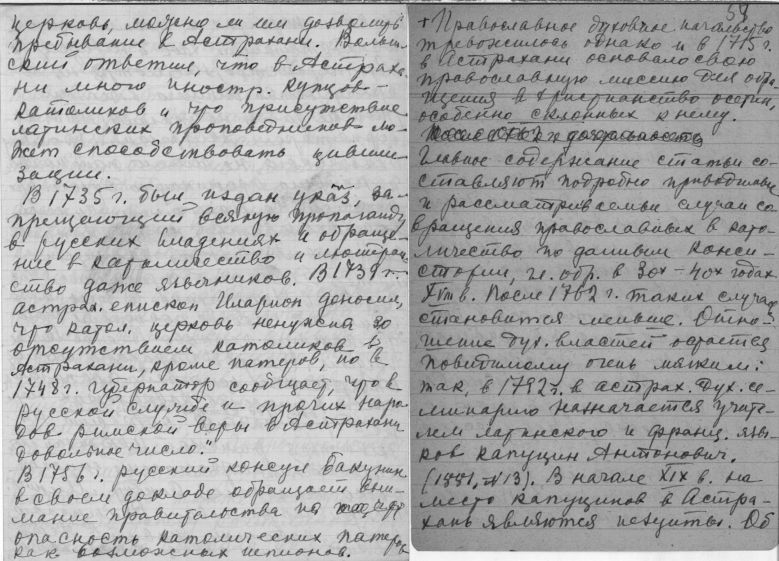 церковь, можно ли им дозволить
пребывание в Астрахани. Волын-
ский ответил, что в Астраха-
ни много иностр. купцов -
католиков и что присутствие
латинских проповедников мо-
жет способствовать цивили-
зации.
В 1735 г. был издан указ, за-
прещающий всякую пропаганду
в русских владениях и обраще-
ние в католичество и лютеран-
ство даже язычников. В 1739 г.
астрах. епископ Иларион доносил,
что катол. церковь ненужна за
отсутствием католиков в
Астрахани, кроме патеров, но в
1748 г. губернатор сообщает, что "в
русской службе и прочих наро-
дов римской веры в Астрахани
довольное число."
В 1756 г. русский консул Бакунин
в своем докладе обращает вни-
мание правительства на
опасность католических патеров
как возможных шпионов.
54
+ Православное духовное начальство
тревожилось однако и в 1715 г.
в Астрахани основало свою
православную миссию для обра-
щения в христианство осетин,
особенно склонных к нему.
Главное содержание статьи со-
ставляют подробно приводимые
и рассматриваемые случаи со-
вращения православных в като-
личество по данным конси-
стории, гл. обр. в 30х - 40х годах
XVIII в. После 1762 г. таких случаев
становится меньше. Отно-
шение дух. властей остается
повидимому очень мягким:
так, в 1792 г. в астрах. дух. се-
минарию назначается учите-
лем латинского и франц. язы-
ков капуцин Антонович.
(1881, №13). В начале XIX в. на
место капуцинов в Астра-
хань являются иезуиты. Об